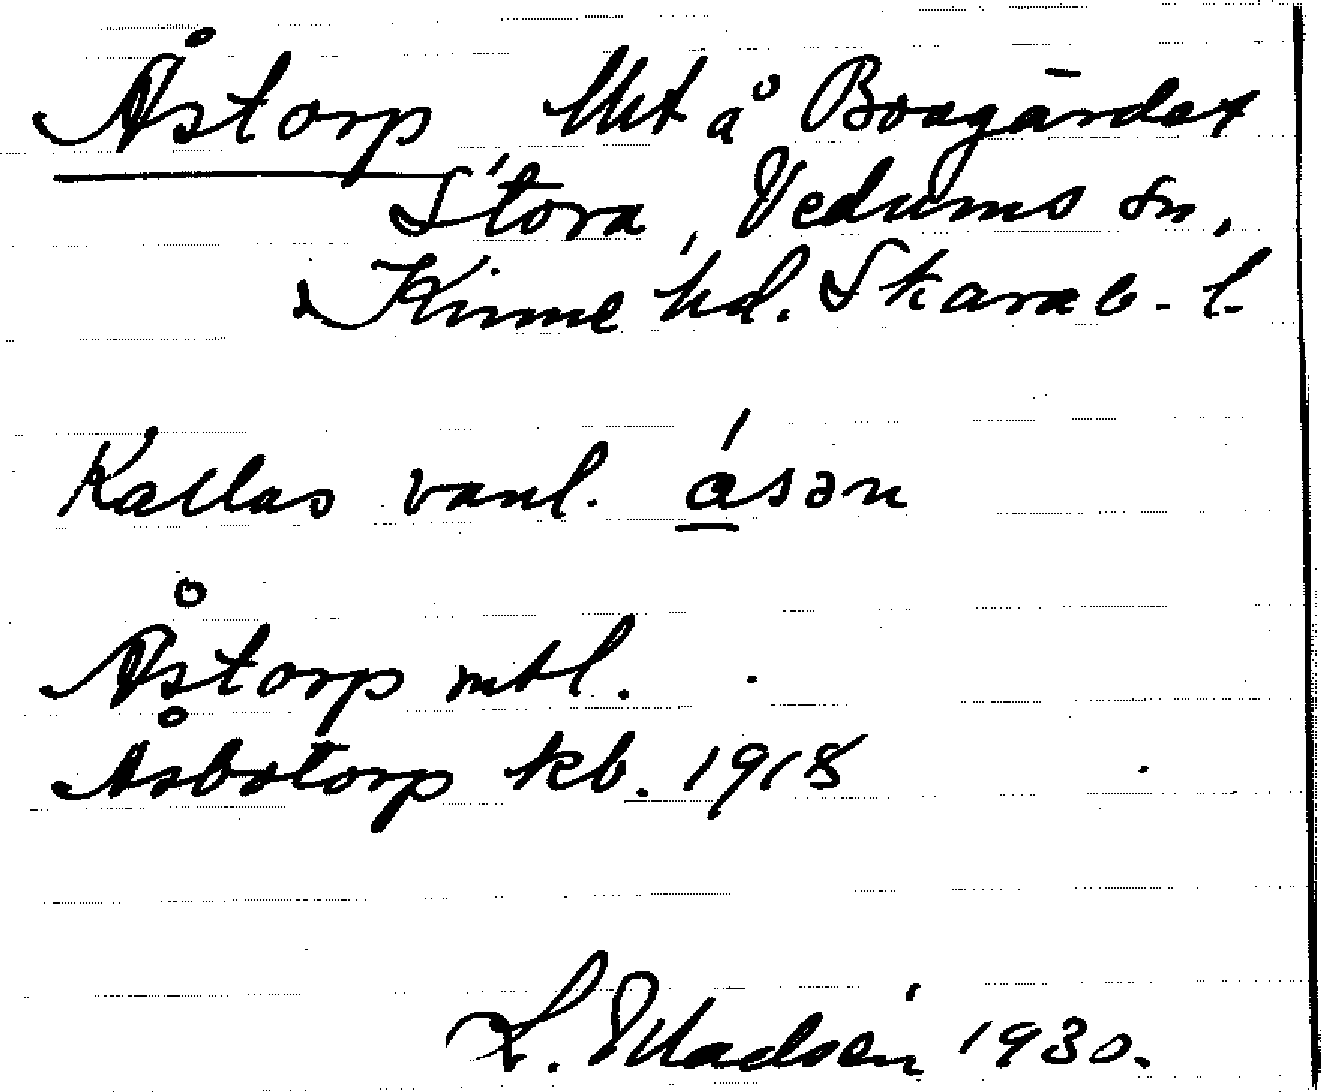 Åstorp lht å Boagärdet
Stora, Vedums sn,
Kinne hd. Skarab. l.
Kallas vanl. ásən
Åstorp mbl.
Åsbotorp kb. 1918
L. Madsén 1930.